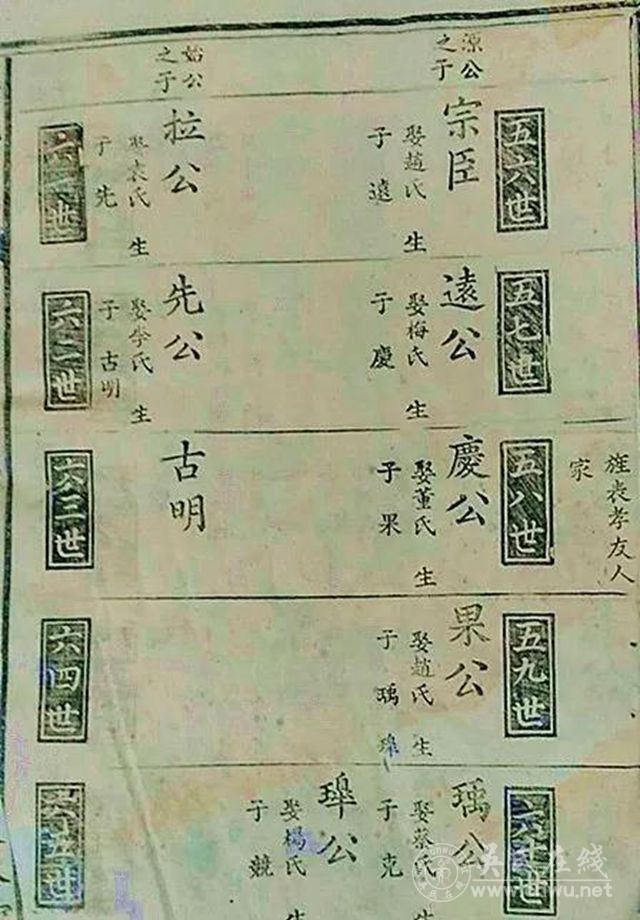 旌表孝友人
家
源公
之子
五六世
宗臣
娶趙氏 生
子遠
五七世
遠公
娶梅氏 生
子慶
五八世
慶公
娶董氏 生
子果
五九世
果公
娶趙氏 生
子瑀
六十世
瑀公
娶蔡氏 生
子克
公
娶楊氏 生
子兢
公
之子
世
拉公
娶袁氏 生
子先
六二世
先公
娶李氏 生
子古明
六三世
古明
六四世
六五世
吴氏在线